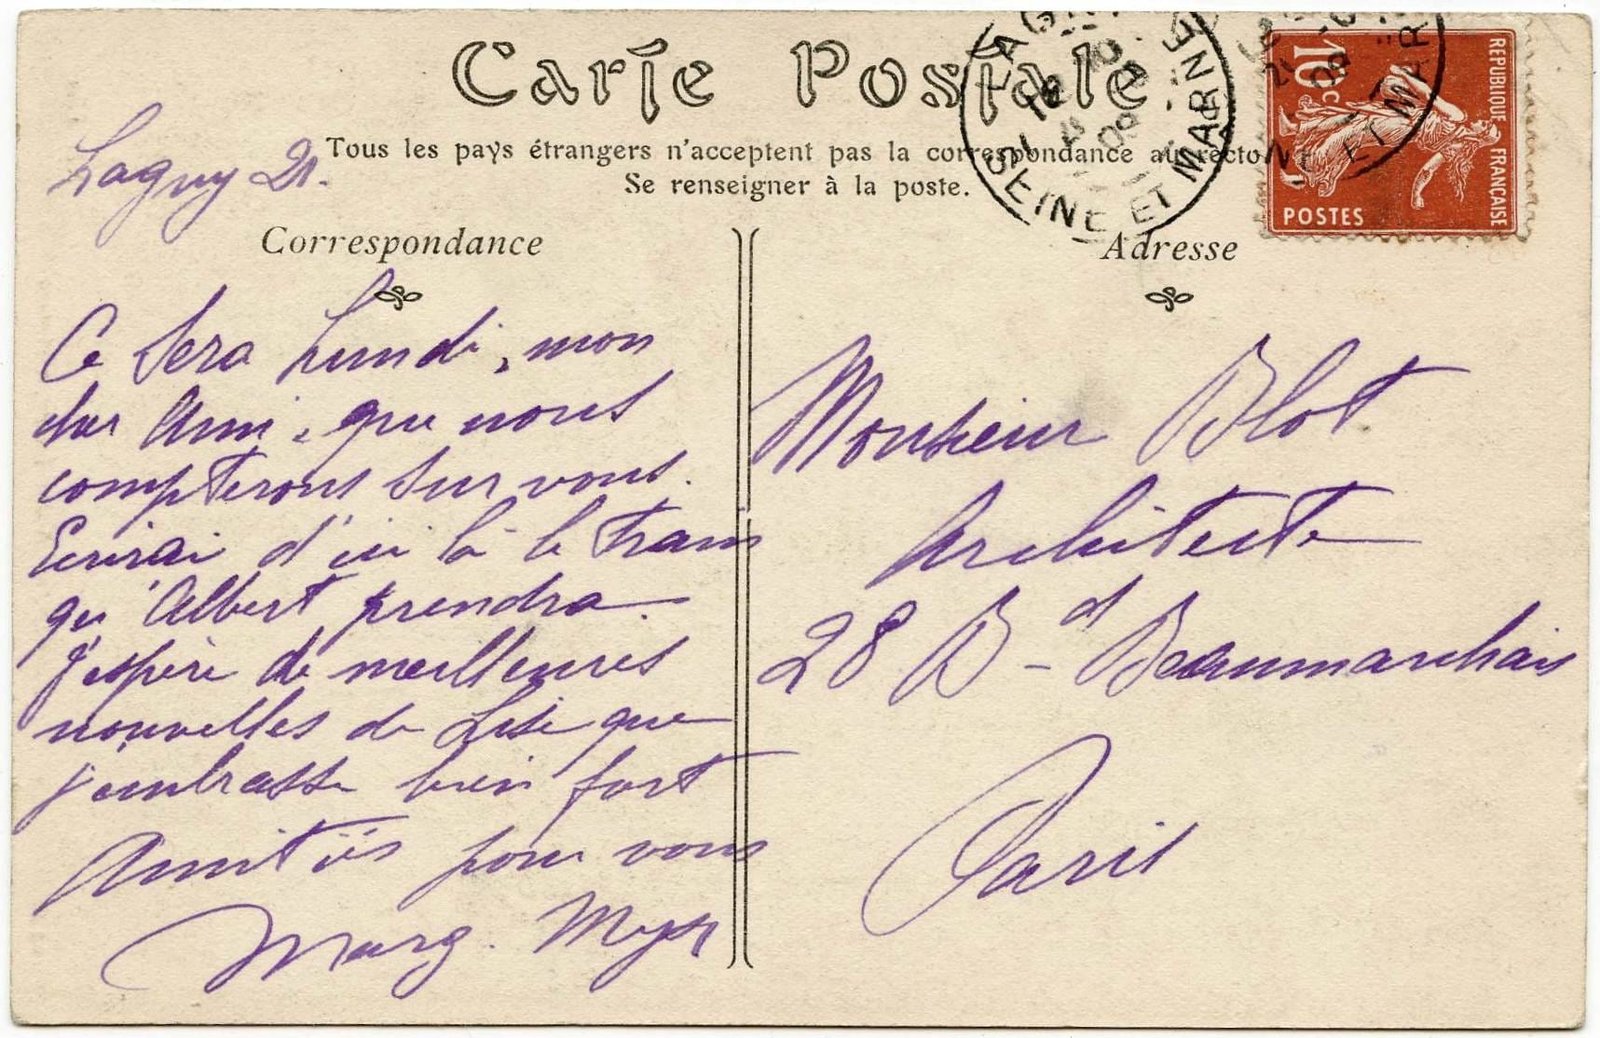 Carte Postale
Tous les pays étrangers n'acceptent pas la correspondance au recto
Se renseigner à la poste.
Lagny 21.
Correspondance
Ce sera Lundi, mon
cher Ami, que nous
compterons sur vous.
Ecrirai d'ici là le train
qu'Albert prendra
J'espère de meilleures
nouvelles de Lise que
j'embrasse bien fort
Amitiés pour vous
Marg.
Adresse
Monsieur Blot
Architecte
28 Bd Beaumarchais
Paris
LAGNY
SEINE ET MARNE
10c
REPUBLIQUE FRANÇAISE
POSTES
NE ET MAR